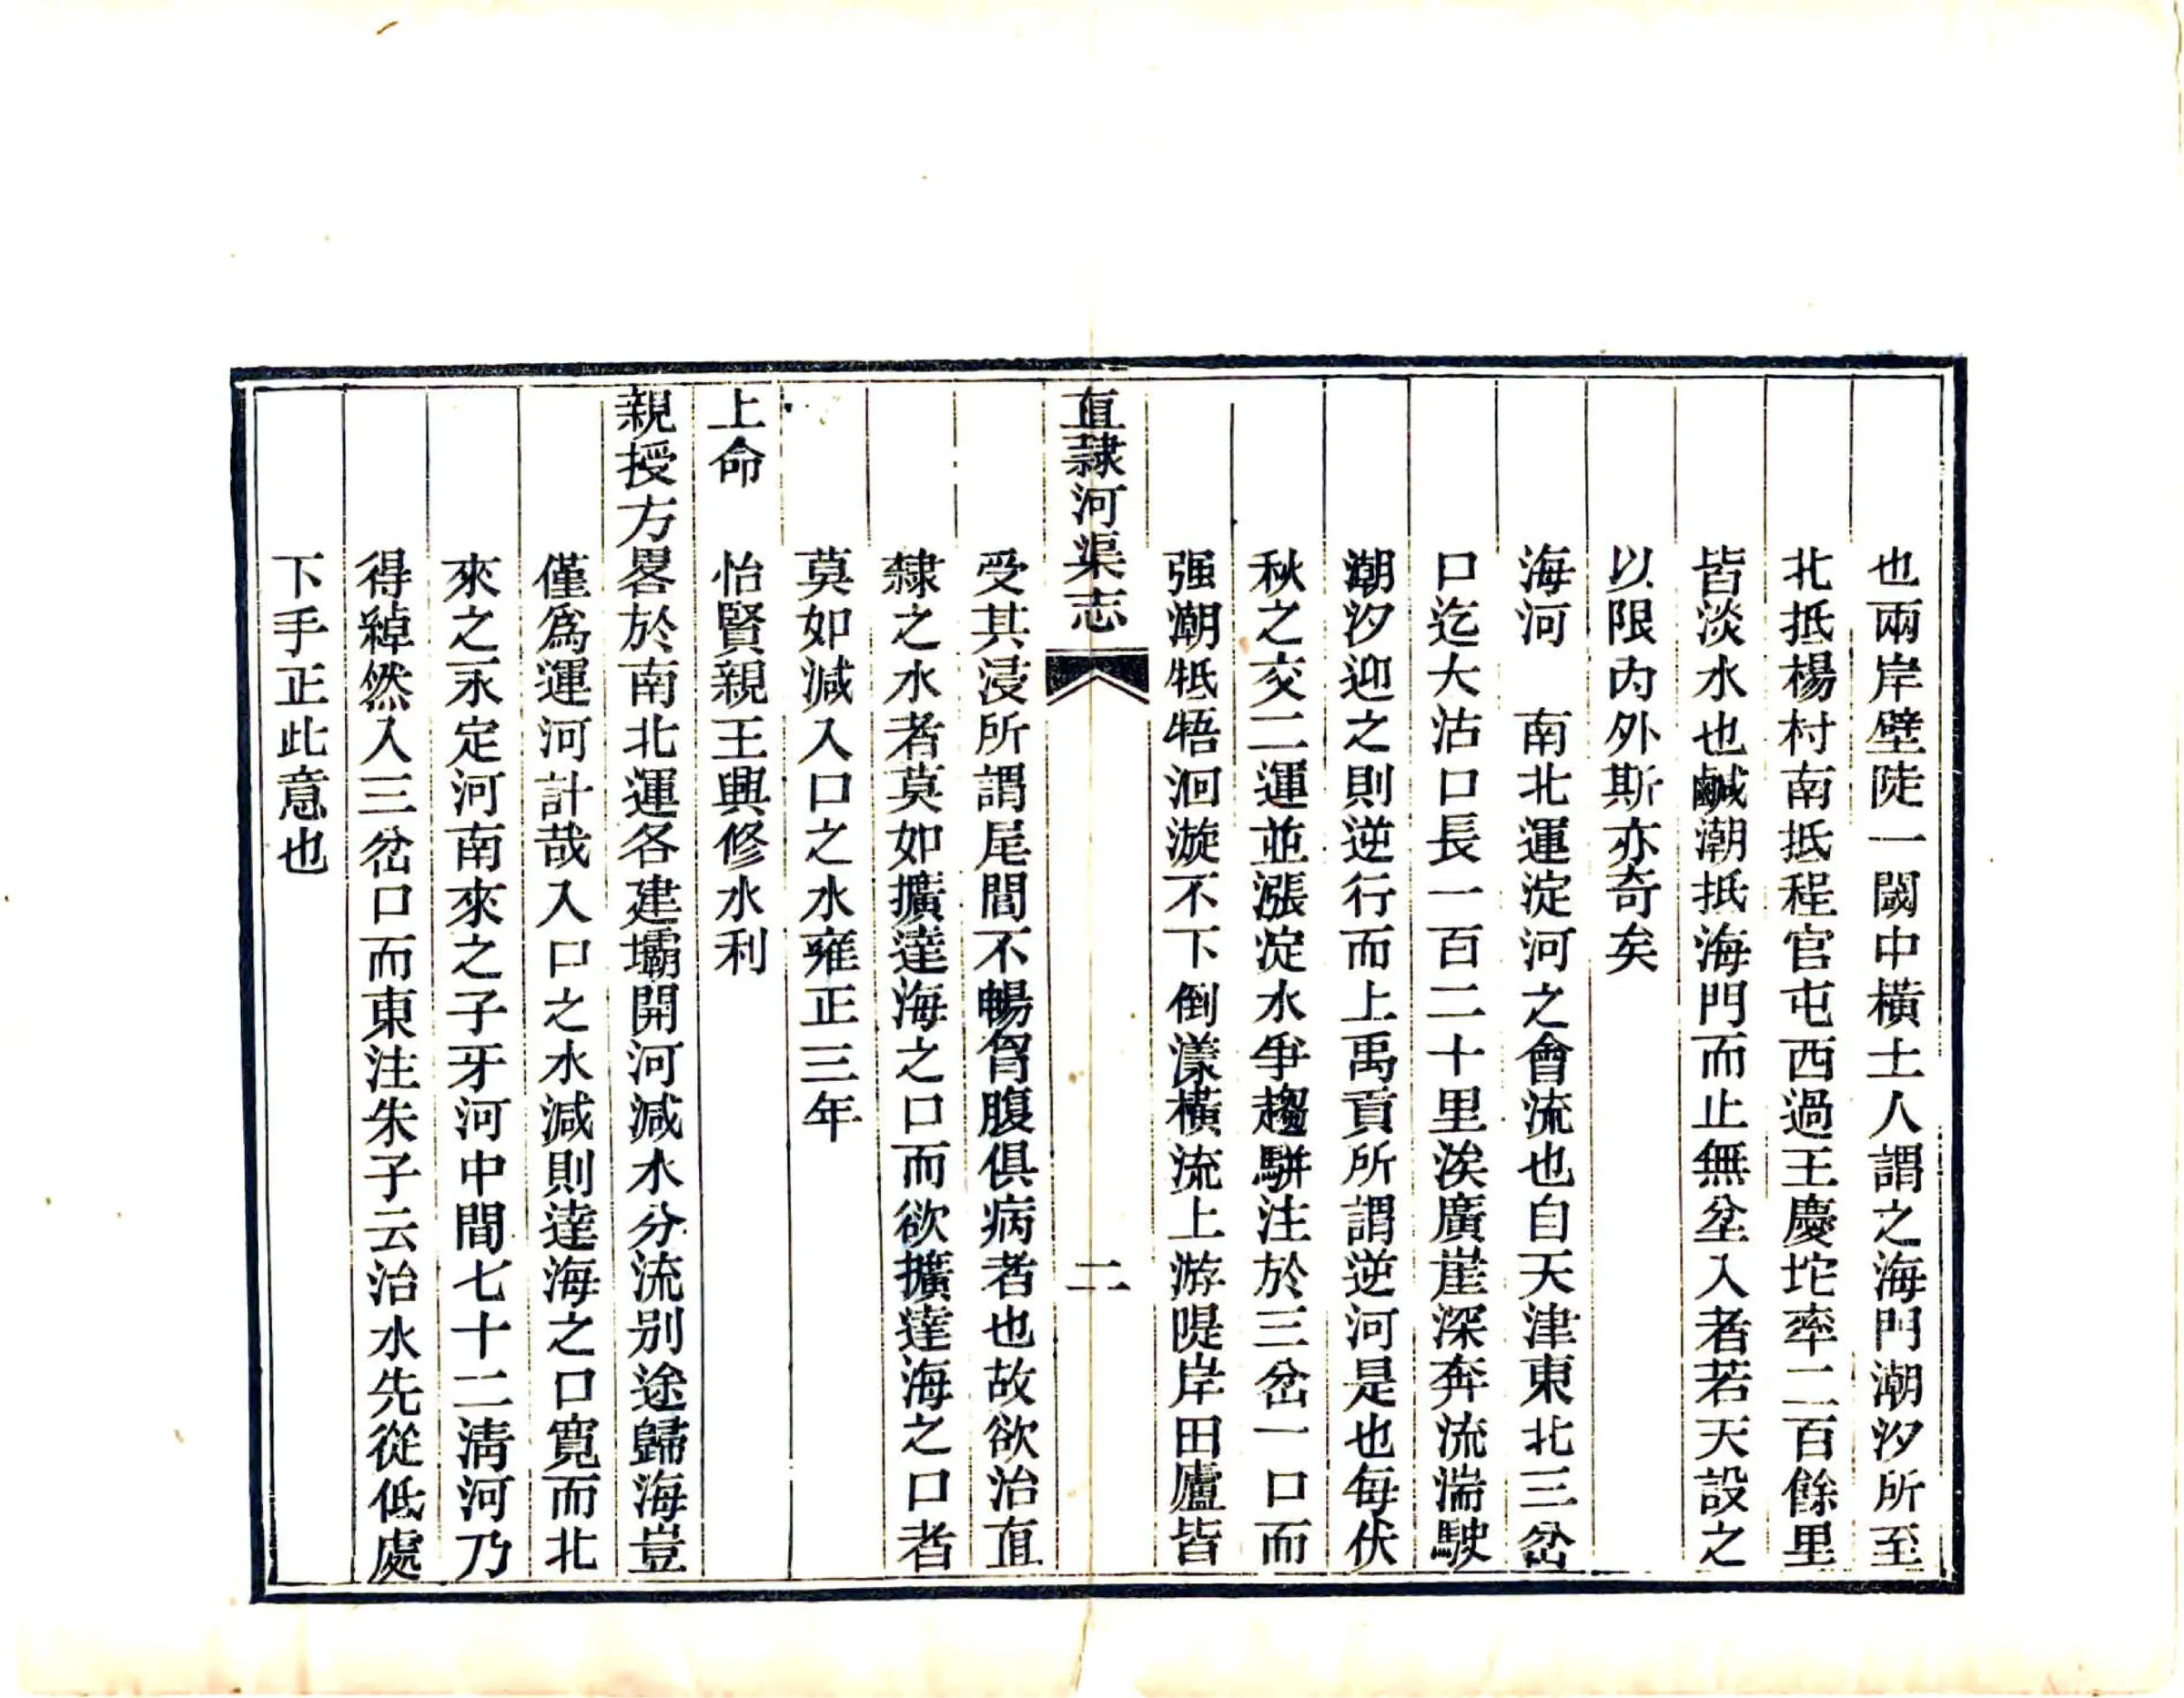 也兩岸壁陡一閾中橫土人謂之海門潮汐所至
北抵楊村南抵程官屯西過王慶坨率二百餘里
皆淡水也鹹潮抵海門而止無坌入者若天設之
以限内外斯亦奇矣
海河　南北運淀河之會流也自天津東北三岔
口迄大沽口長一百二十里渙廣崖深奔流湍駛
潮汐迎之則逆行而上禹貢所謂逆河是也每伏
秋之交二運並漲淀水爭趨駢注於三岔一口而
强潮牴牾洄漩不下倒漾橫流上游隄岸田廬皆
直隷河渠志
二
受其浸所謂尾閭不暢胷腹俱病者也故欲治直
隷之水者莫如擴達海之口而欲擴達海之口者
莫如減入口之水雍正三年
上命　怡賢親王興修水利
親授方畧於南北運各建壩開河減水分流别途歸海豈
僅爲運河計哉入口之水減則達海之口寛而北
來之永定河南來之子牙河中間七十二清河乃
得綽然入三岔口而東注朱子云治水先從低處
下手正此意也